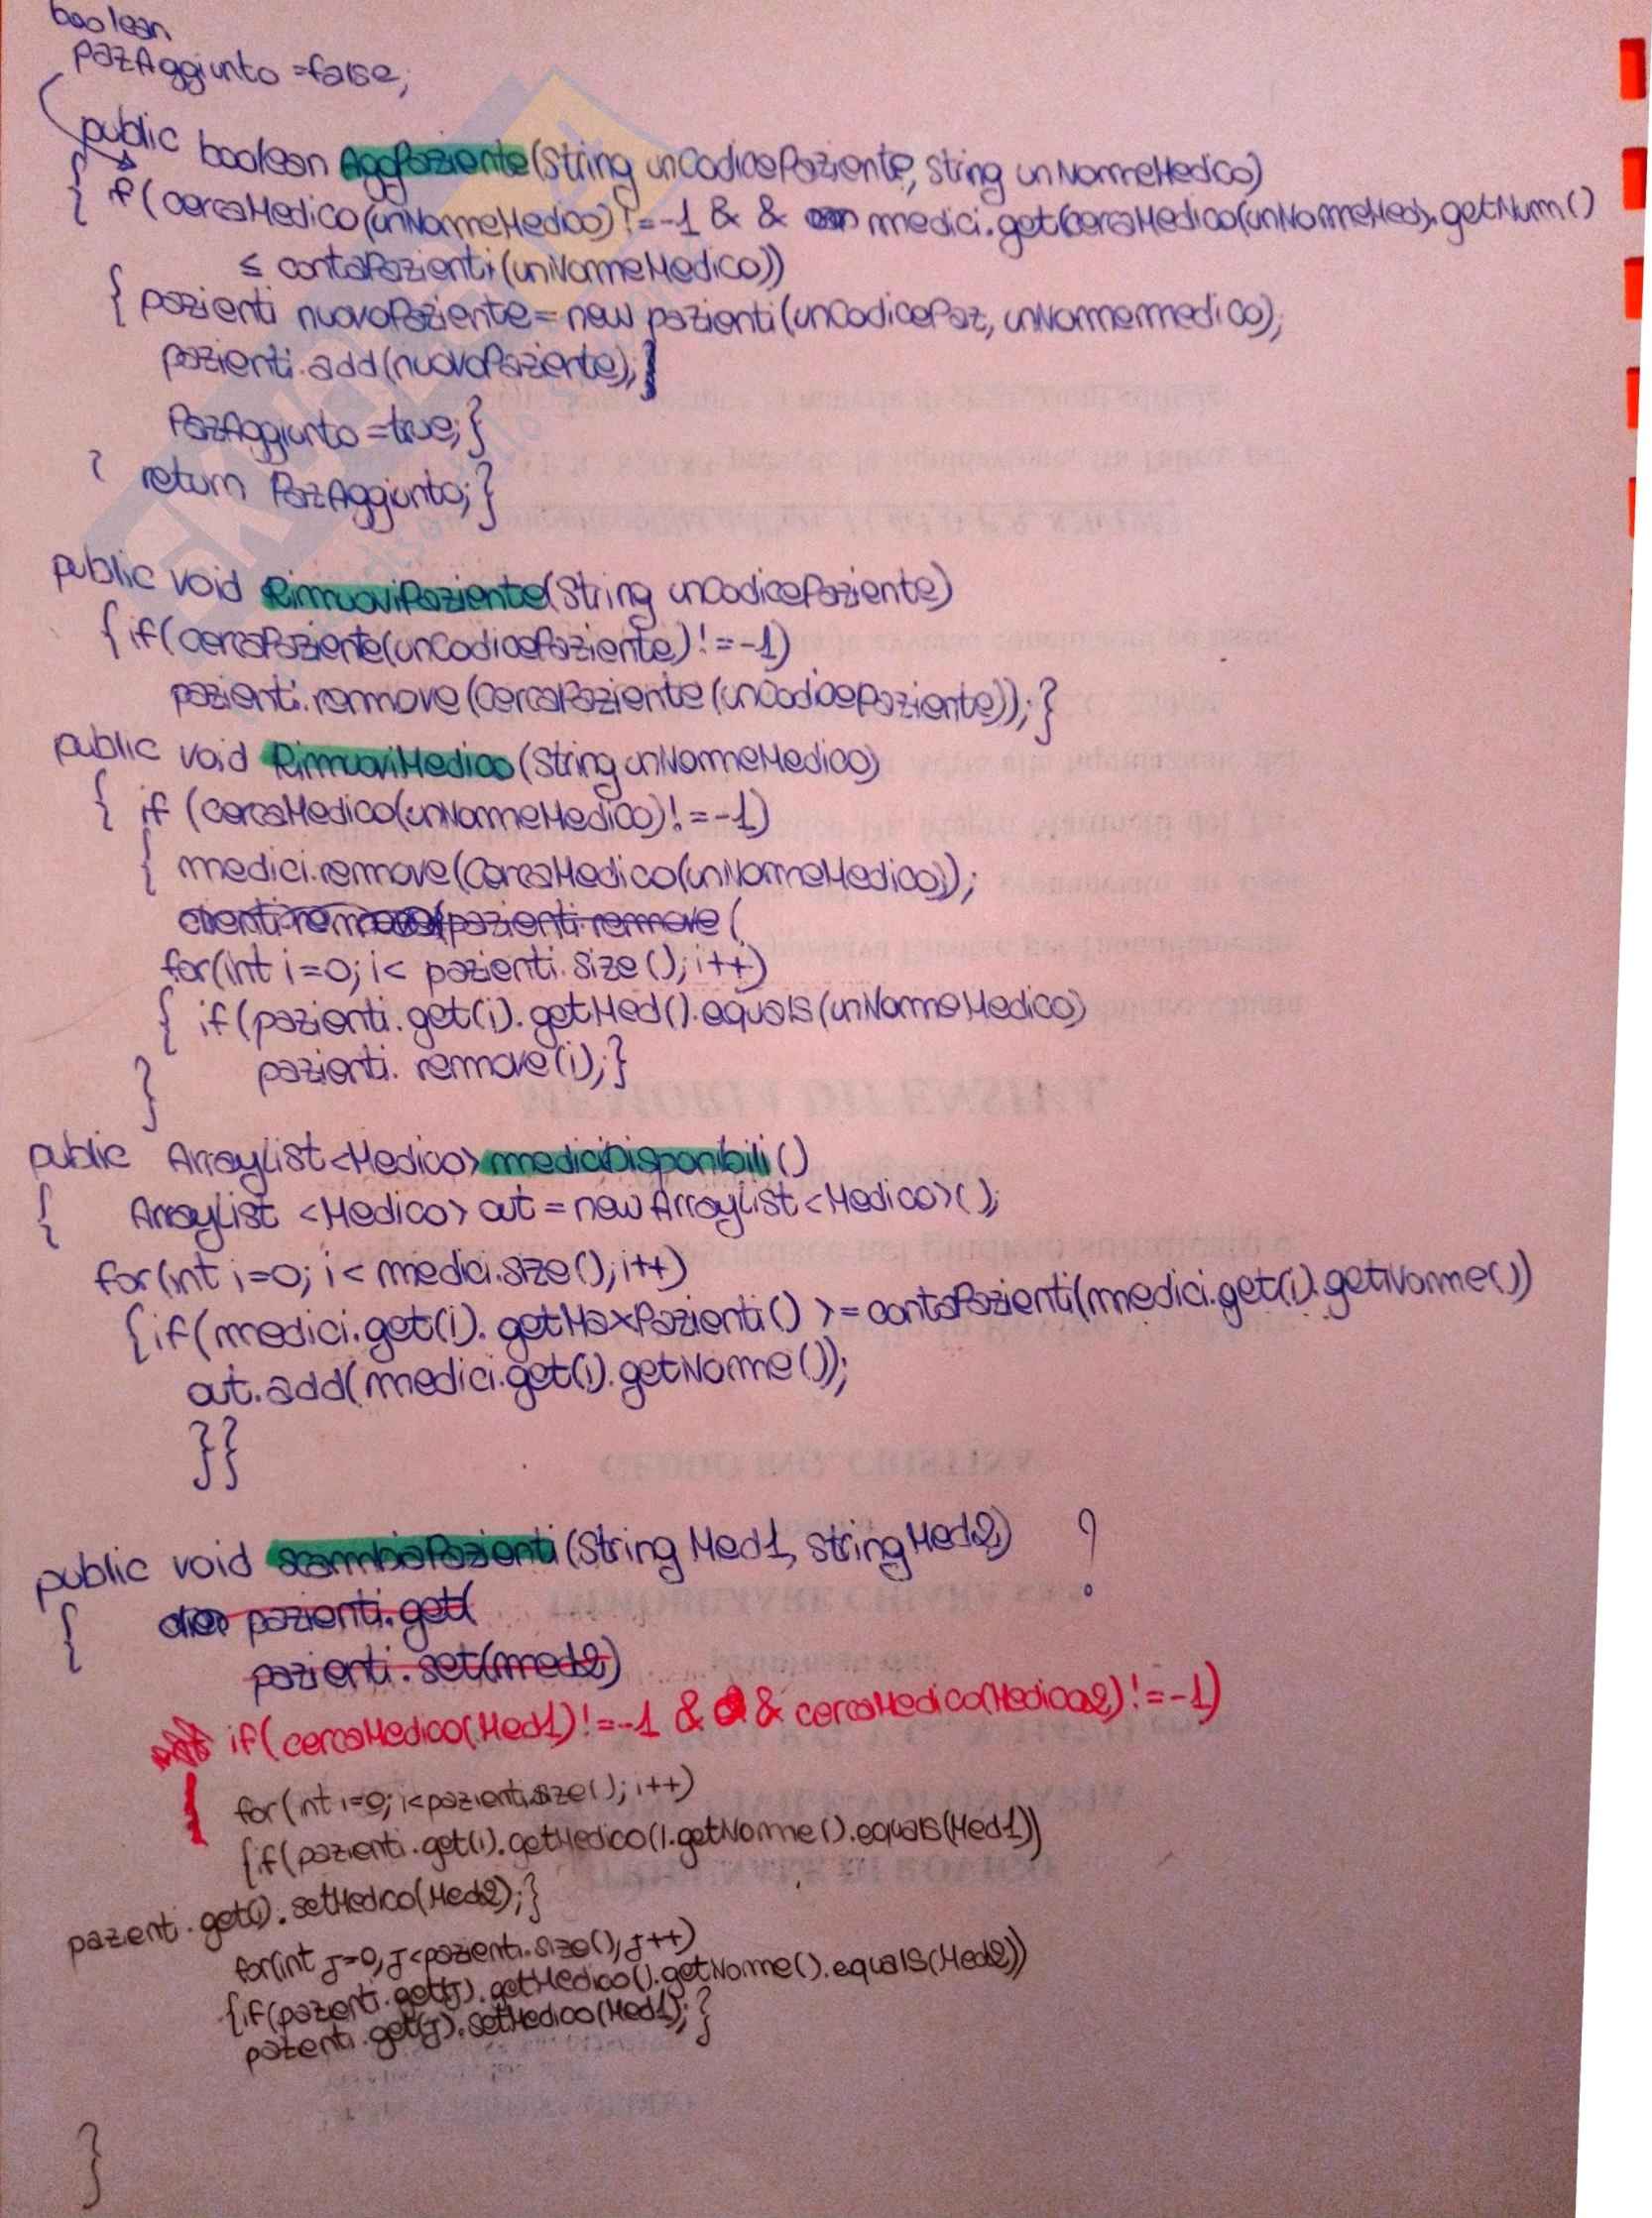 boolean
pazAggiunto =false;
public boolean AggPaziente(String unCodicePaziente, String unNomeMedico)
{ if(cercaMedico(unNomeMedico)!=-1 & & medici.get(cercaMedico(unNomeMed)).getNum()
≤ contaPazienti(unNomeMedico))
{ pazienti nuovoPaziente= new pazienti(unCodicePaz, unNomemedico);
pazienti.add(nuovoPaziente);}
PazAggiunto =true;}
return PazAggiunto;}
public void RimuoviPaziente(String unCodicePaziente)
{if(cercaPaziente(unCodicePaziente)!=-1)
pazienti.remove(CercaPaziente(unCodicePaziente));}
public void RimuoviMedico(String unNomeMedico)
{ if (cercaMedico(unNomeMedico)!=-1)
{ medici.remove(CercaMedico(unNomeMedico));
pazienti.remove(
for(int i=0; i< pazienti.size();i++)
{ if(pazienti.get(i).getMed().equals(unNomeMedico)
pazienti. remove(i);}
}
public ArrayList<Medico> mediciDisponibili()
{ ArrayList <Medico> out = new ArrayList<Medico>();
for(int i=0; i< medici.size();i++)
{if(medici.get(i). getMaxPazienti() >=contaPazienti(medici.get(i).getNome())
out.add(medici.get(i).getNome());
}}
public void scambiaPazienti(String Med1, String Med2) ?
{ pazienti.get(
pazienti.set(med2)
if(cercaMedico(Med1)!=-1 & & cercaMedico(Medico2)!=-1)
{ for(int i=0; i<pazienti.size(); i++)
{if(pazienti.get(i).getMedico().getNome().equals(Med1))
pazienti.get(i).setMedico(Med2);}
for(int j=0,j<pazienti.size(),j++)
{if(pazienti.get(j).getMedico().getNome().equals(Med2))
pazienti.get(j).setMedico(Med1);}
}